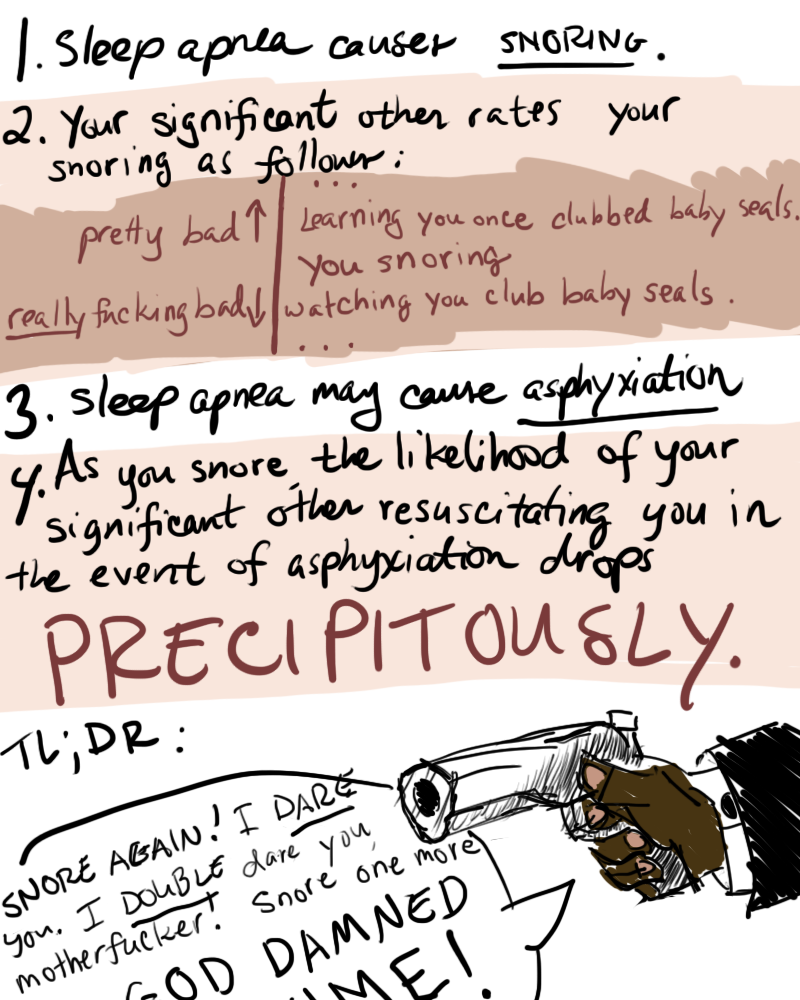 1. Sleep apnea causes SNORING.
2. Your significant other rates your
snoring as follows:
...
pretty bad↑ Learning you once clubbed baby seals.
you snoring
really fucking bad↓ watching you club baby seals.
...
3. Sleep apnea may cause asphyxiation
4. As you snore, the likelihood of your
significant other resuscitating you in
the event of asphyxiation drops
PRECIPITOUSLY.
TL;DR:
SNORE AGAIN! I DARE
you. I DOUBLE dare you,
motherfucker! Snore one more
GOD DAMNED
TIME!